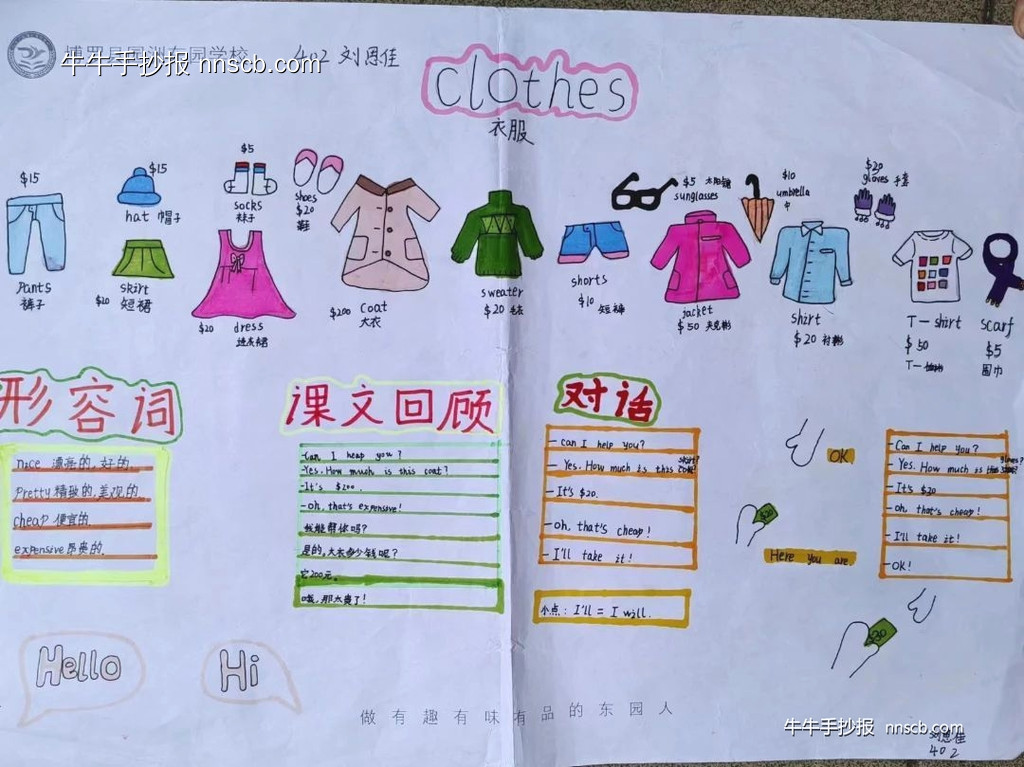 博罗县园洲东园学校 402 刘恩佳
牛牛手抄报 nnscb.com
clothes
衣服
$15
Pants
裤子
$15
hat 帽子
skirt
$20 短裙
$5
socks
袜子
$20 dress
连衣裙
shoes
$20
鞋
$200 Coat
大衣
sweater
$20 毛衣
$5 太阳镜
sunglasses
shorts
$10 短裤
jacket
$50 夹克衫
$10
umbrella
shirt
$20 衬衫
$20
gloves 手套
T-shirt
$50
T一
scarf
$5
围巾
形容词
nice 漂亮的,好的.
Pretty 精致的,美观的
cheap 便宜的
expensive 昂贵的.
课文回顾
Can I heap you?
-Yes. How much is this coat?
-It's $200.
-oh, that's expensive!
我能帮你吗?
是的,大衣多少钱呢?
它200元。
哦,那太贵了!
对话
- can I help you?
- Yes. How much is this skirt?
- It's $20.
- oh, that's cheap!
- I'll take it!
小点: I'll = I will.
OK.
$20
Here you are.
- Can I help you?
- Yes. How much is this
- It's $20
- oh, that's cheap!
- I'll take it!
- OK!
Hello
Hi
做有趣有味有品的东园人
牛牛手抄报 nnscb.com
刘恩佳
402